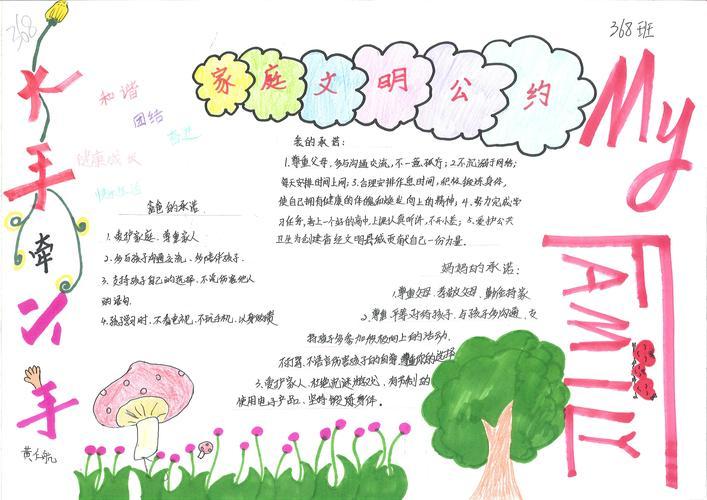 368
368班
大手牵小手
黄仁航
和谐
团结
奋进
健康成长
快乐生活
家庭文明公约
My
FAMILY
我的承诺:
1.尊重父母,多与沟通交流,不一意孤行;2.不沉迷于网络;
每天安排时间上网;3.合理安排作息时间,积极锻炼身体,
使自己拥有健康的体魄和积极向上的精神;4.努力完成学
习任务,考上一个好的高中,上课认真听讲,不开小差;5.爱护公共
卫生为创建省级文明县城贡献自己一份力量.
爸爸的承诺
1.爱护家庭、尊重家人
2.多与孩子沟通交流、多陪伴孩子.
3.支持孩子自己的选择,不说伤害他人
的话句.
4.孩子学习时,不看电视,不玩手机,以身做则
妈妈的承诺:
1.尊重父母、孝敬父母、勤俭持家
2.尊重、平等对待孩子,与孩子多沟通、支
持孩子多参加积极向上的活动.
不打骂、不语言伤害孩子的自尊,尊重你的选择
3.爱护家人、杜绝沉迷游戏、有节制的
使用电子产品、坚持锻炼身体.